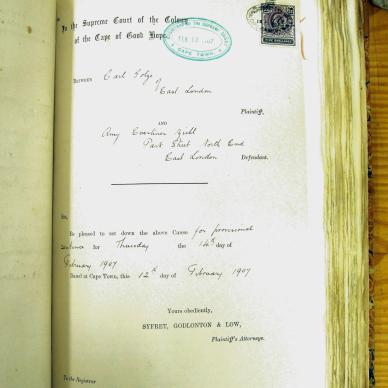 In the Supreme Court of the Colony
of the Cape of Good Hope.
FEB 12 1907
CAPE TOWN.
FIVE SHILLINGS
BETWEEN Carl of
East London
Plaintiff,
AND
Amy
Park Street North End
East London Defendant.
Sir,
Be pleased to set down the above Cause for provisional
sentence for Thursday the 14th day of
February 1907
Dated at Cape Town, this 12th day of February 1907
Yours obediently,
SYFRET, GODLONTON & LOW,
Plaintiff's Attorneys.
To the Registrar